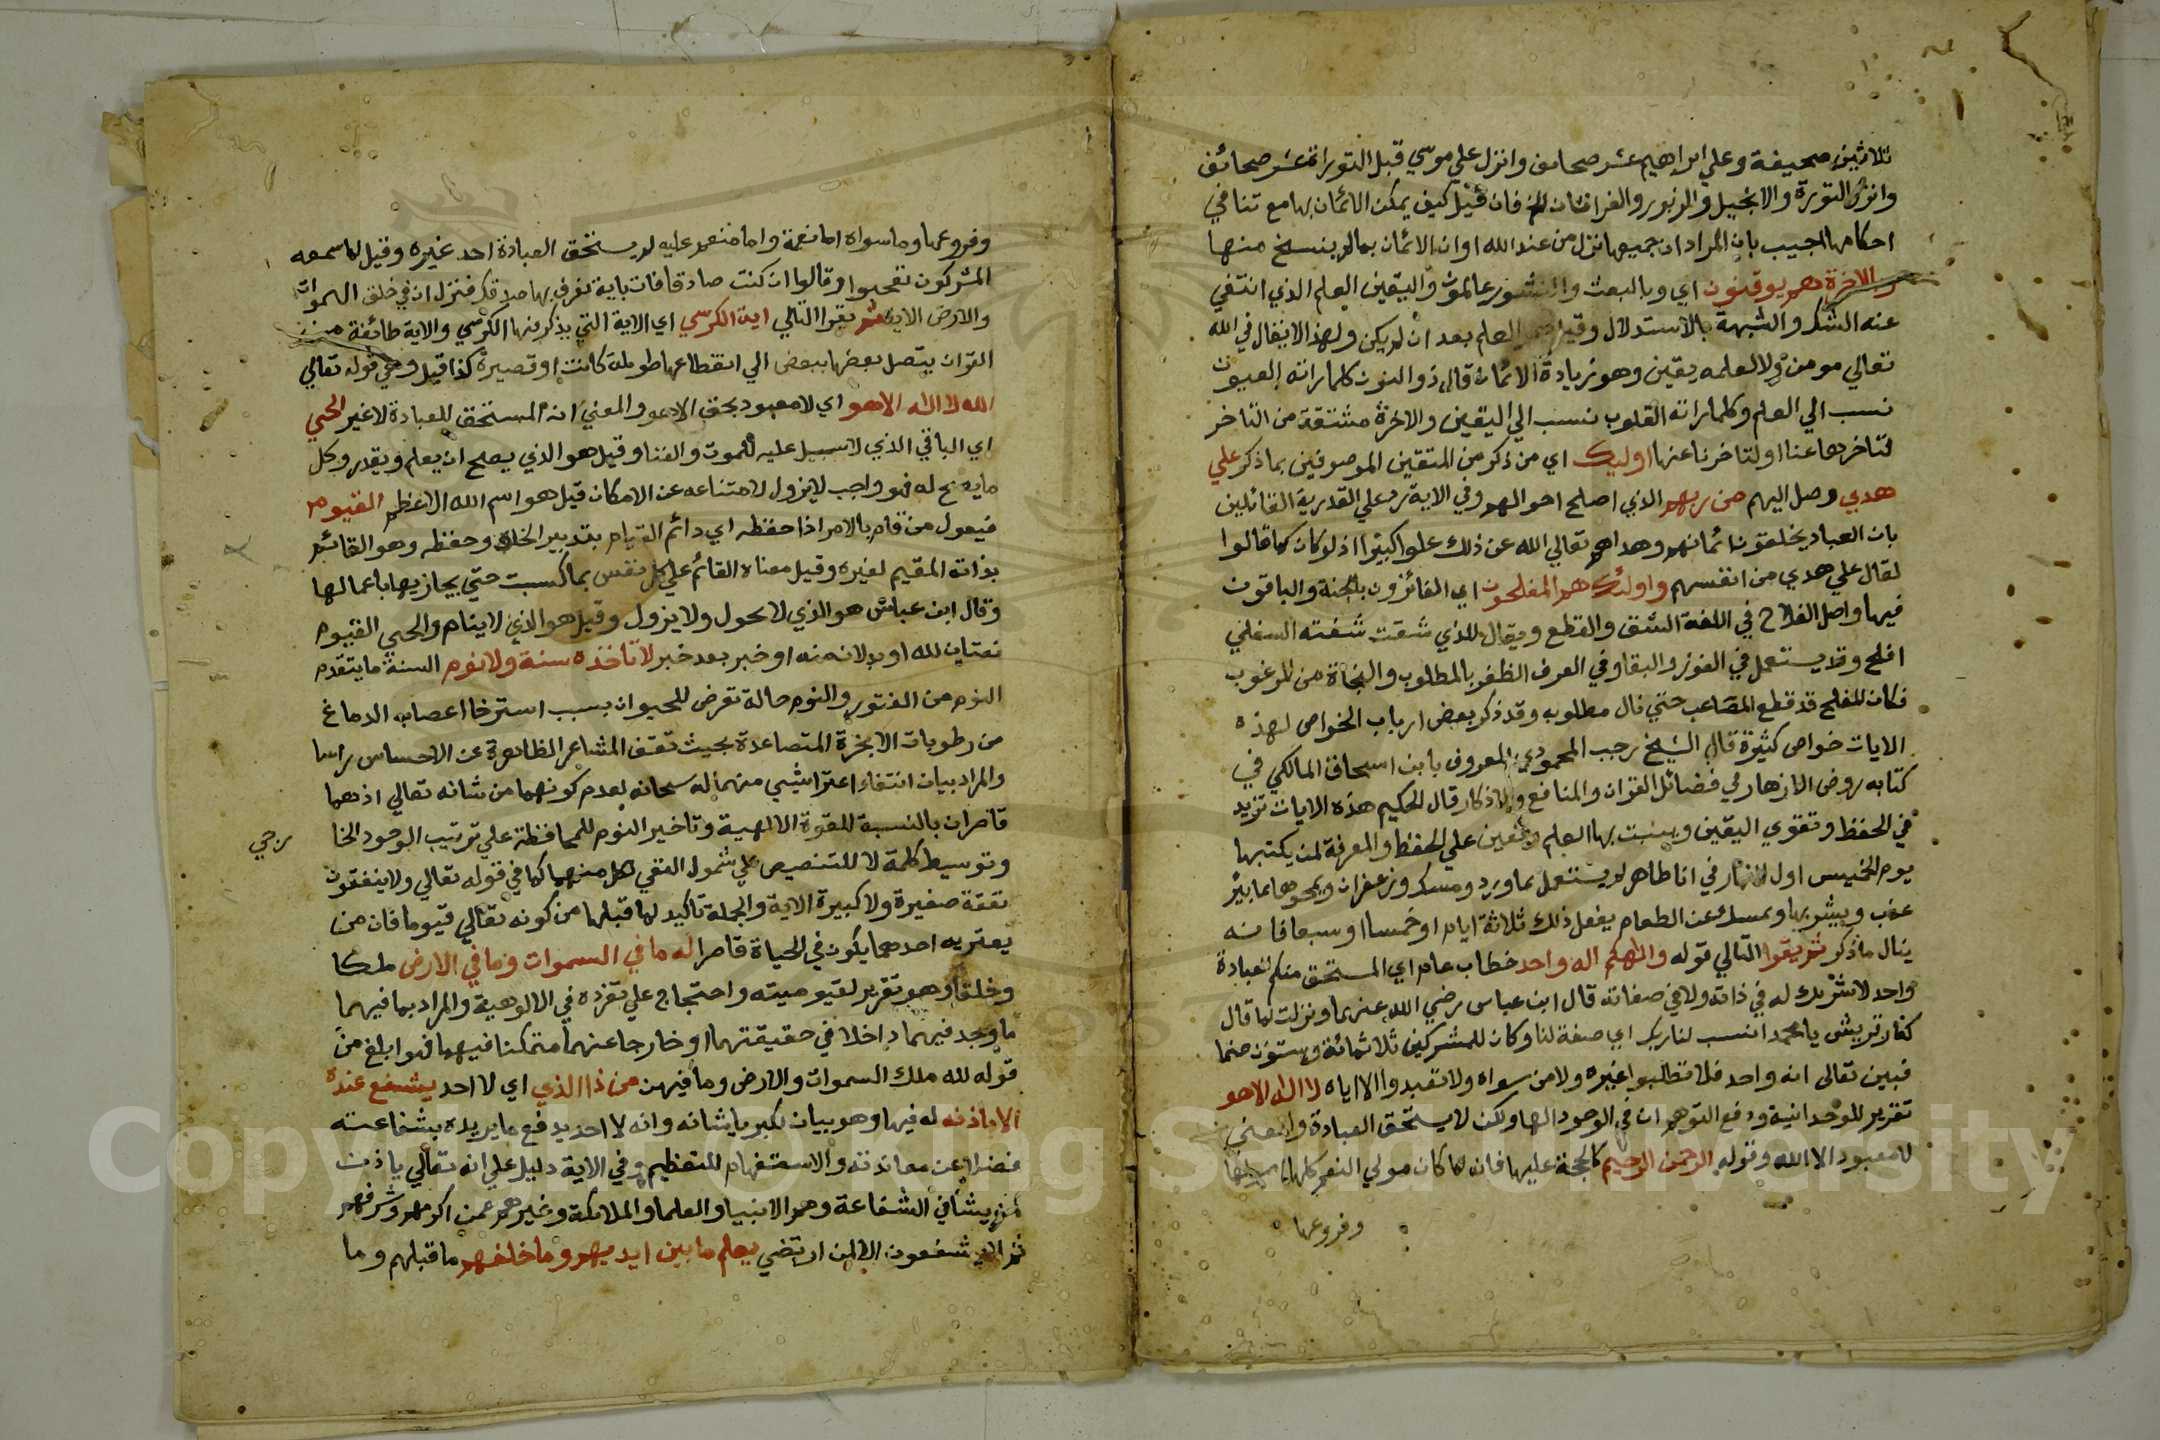 ثلاثين صحيفة وعلي ابراهيم عشر صحائف وانزل علي موسي قبل التوراة عشر صحائف
وانزل التورة والانجيل والزبور والفرقان فان قيل كيف يمكن الائمان بها مع تنافي
احكامها اجيب بان المراد ان جميعها نزل من عند الله او ان الائمان بما لم ينسخ منها
وبالاخرة هم يوقنون اي وبالبعث والنشور عالموث واليقين العلم الذي انتفي
عنه الشك والشبهة بالاستدلال وقيل هو العلم بعد ان لم يكن ولهذا لايقال في الله
تعالي مومن ولا لعلمه يقين وهو زيادة الائمان قال ذوالنون كلما راته العيون
نسب الي العلم وكلما راته القلوب نسب الي اليقين والاخرة مشتقة من التاخر
لتاخرها عنا او لتاخرنا عنها اوليك اي من ذكر من المتقين الموصوفين بما ذكر علي
هدي وصل اليهم من ربهم الذي اصلح احوالهم وفي الاية رد علي القدرية القائلين
بان العباد يخلقون ائمانهم وهداهم تعالي الله عن ذلك علوا كبيرا اذ لو كان كما قالوا
لقال علي هدي من انفسهم واولئك هم المفلحون اي الفائزون بالجنة والباقون
فيها واصل الفلاح في اللغة الشق والقطع ويقال للذي شقت شفته السفلي
افلح وقد يستعمل في الفوز والبقا وفي العرف الظفر بالمطلوب والنجاة من المرغوب
فكان المفلح قد قطع المصاعب حتي نال مطلوبه وقد ذكر بعض ارباب الخواص لهذه
الايات خواص كثيرة قال الشيخ رجب المحمودي المعروف بابن اسحاق المالكي في
كتابه روض الازهار في فضائل القران والمنافع والاذكار قال الحكيم هذه الايات تزيد
في الحفظ وتقوي اليقين ويثبت بها العلم وتعين علي الحفظ والمعرفة لمن يكتبها
يوم الخميس اول النهار في انا طاهر لم يستعمل بما ورد ومسك وزعفران ويمحوها بما بئر
عذب ويشربها ويمسك عن الطعام يفعل ذلك ثلاثة ايام او خمسا او سبعا فانه
ينال ما ذكر ثم يقوا التالي قوله والهكم اله واحد خطاب عام اي المستحق منكم لعبادة
واحد لا شريك له في ذاته ولا في صفاته قال ابن عباس رضي الله عنهما ونزلت لما قال
كفار قريش يا محمد انسب لنا ربك اي صفة لنا وكان للمشركين ثلاثمائة وستون صنما
فبين تعالى انه واحد فلا تطلبوا غيره ولا من سواه ولا تعبدوا الا اياه لا اله الا هو
تقرير للوحدانية ودفع التوهم ان في الوجود الها ولكن لا يستحق العبادة والمعني
لا معبود الا الله وقوله الرحمن الرحيم كالحجة عليها فانه لما كان مولي النعم كلها اصولها
وفروعها
وفروعها وما سواه اما نعمة واما منعم عليه لم يستحق العبادة احد غيره وقيل لما سمعه
المشركون تعجبوا وقالوا ان كنت صادقا فات باية نعرف بها صدقك فنزل ان في خلق السموات
والارض الاية ثم يقرا التالي اية الكرسي اي الاية التي يذكر فيها الكرسي والاية طائفة من
القران يتصل بعضها ببعض الي انقطاعها طويلة كانت او قصيرة كذا قيل وهي قوله تعالي
الله لا اله الا هو اي لا معبود بحق الا هو والمعني انه المستحق للعبادة لا غير الحي
اي الباقي الذي لا سبيل عليه للموت والفنا وقيل هو الذي يصح ان يعلم ويقدر وكل
ما يصح له فهو واجب لا يزول لامتناعه عن الامكان قيل هو اسم الله الاعظم القيوم
فيعول من قام بالامر اذا حفظه اي دائم القيام بتدبير الخلق وحفظه وهو القائم
بذاته المقيم لغيره وقيل معناه القائم علي كل نفس بما كسبت حتي يجازيها باعمالها
وقال ابن عباس هو الذي لا يحول ولا يزول وقيل هو الذي لا ينام والحي القيوم
نعتان لله او بدلان منه او خبر بعد خبر لا تاخذه سنة ولا نوم السنة ما يتقدم
النوم من الفتور والنوم حالة تعرض للحيوان بسبب استرخا اعصاب الدماغ
من رطوبات الابخرة المتصاعدة بحيث تقف المشاعر الظاهرة عن الاحساس راسا
والمراد بيان انتفاء اعترا شيي منهما له سبحانه لعدم كونهما من شانه تعالي اذ هما
قاصران بالنسبة للقوة الالهية وتاخير النوم للمحافظة علي ترتيب الوجود الخا
رجي
وتوسيط كلمة لا للتنصيص علي شمول النفي لكل منهما كما في قوله تعالي ولا ينفقون
نفقة صغيرة ولا كبيرة الاية والجملة تاكيد لما قبلها من كونه تعالي قيوما فان من
يعتريه احدهما يكون في الحياة قاصرا له ما في السموات وما في الارض ملكا
وخلقا وهو تقرير لقيوميته واحتجاج علي تفرده في الالوهية والمراد بما فيهما
ما وجد فيهما داخلا في حقيقتهما او خارجا عنهما متمكنا فيهما فهو ابلغ من
قوله لله ملك السموات والارض وما فيهن من ذا الذي اي لا احد يشفع عنده
الا باذنه له فيها وهو بيان لكبريا شانه وانه لا احد يدفع ما يريده بشفاعته
فضلا عن معاندته والاستفهام للتعظيم وفي الاية دليل علي انه تعالي ياذن
لمن يشا في الشفاعة وهم الانبيا والعلما والملائكة وغيرهم ممن اكرمهم وشرفهم
ثم لا يشفعون الا لمن ارتضي يعلم ما بين ايديهم وما خلفهم ما قبلهم وما
Copyright © King Saud University